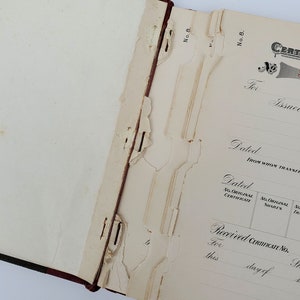 No. 8.
No. 8.
CERT
No
For
Issued
Dated
FROM WHOM TRANSFE
Dated
NO. ORIGINAL
CERTIFICATE
NO. ORIGINAL
SHARES
Received CERTIFICATE NO.
For
this day of